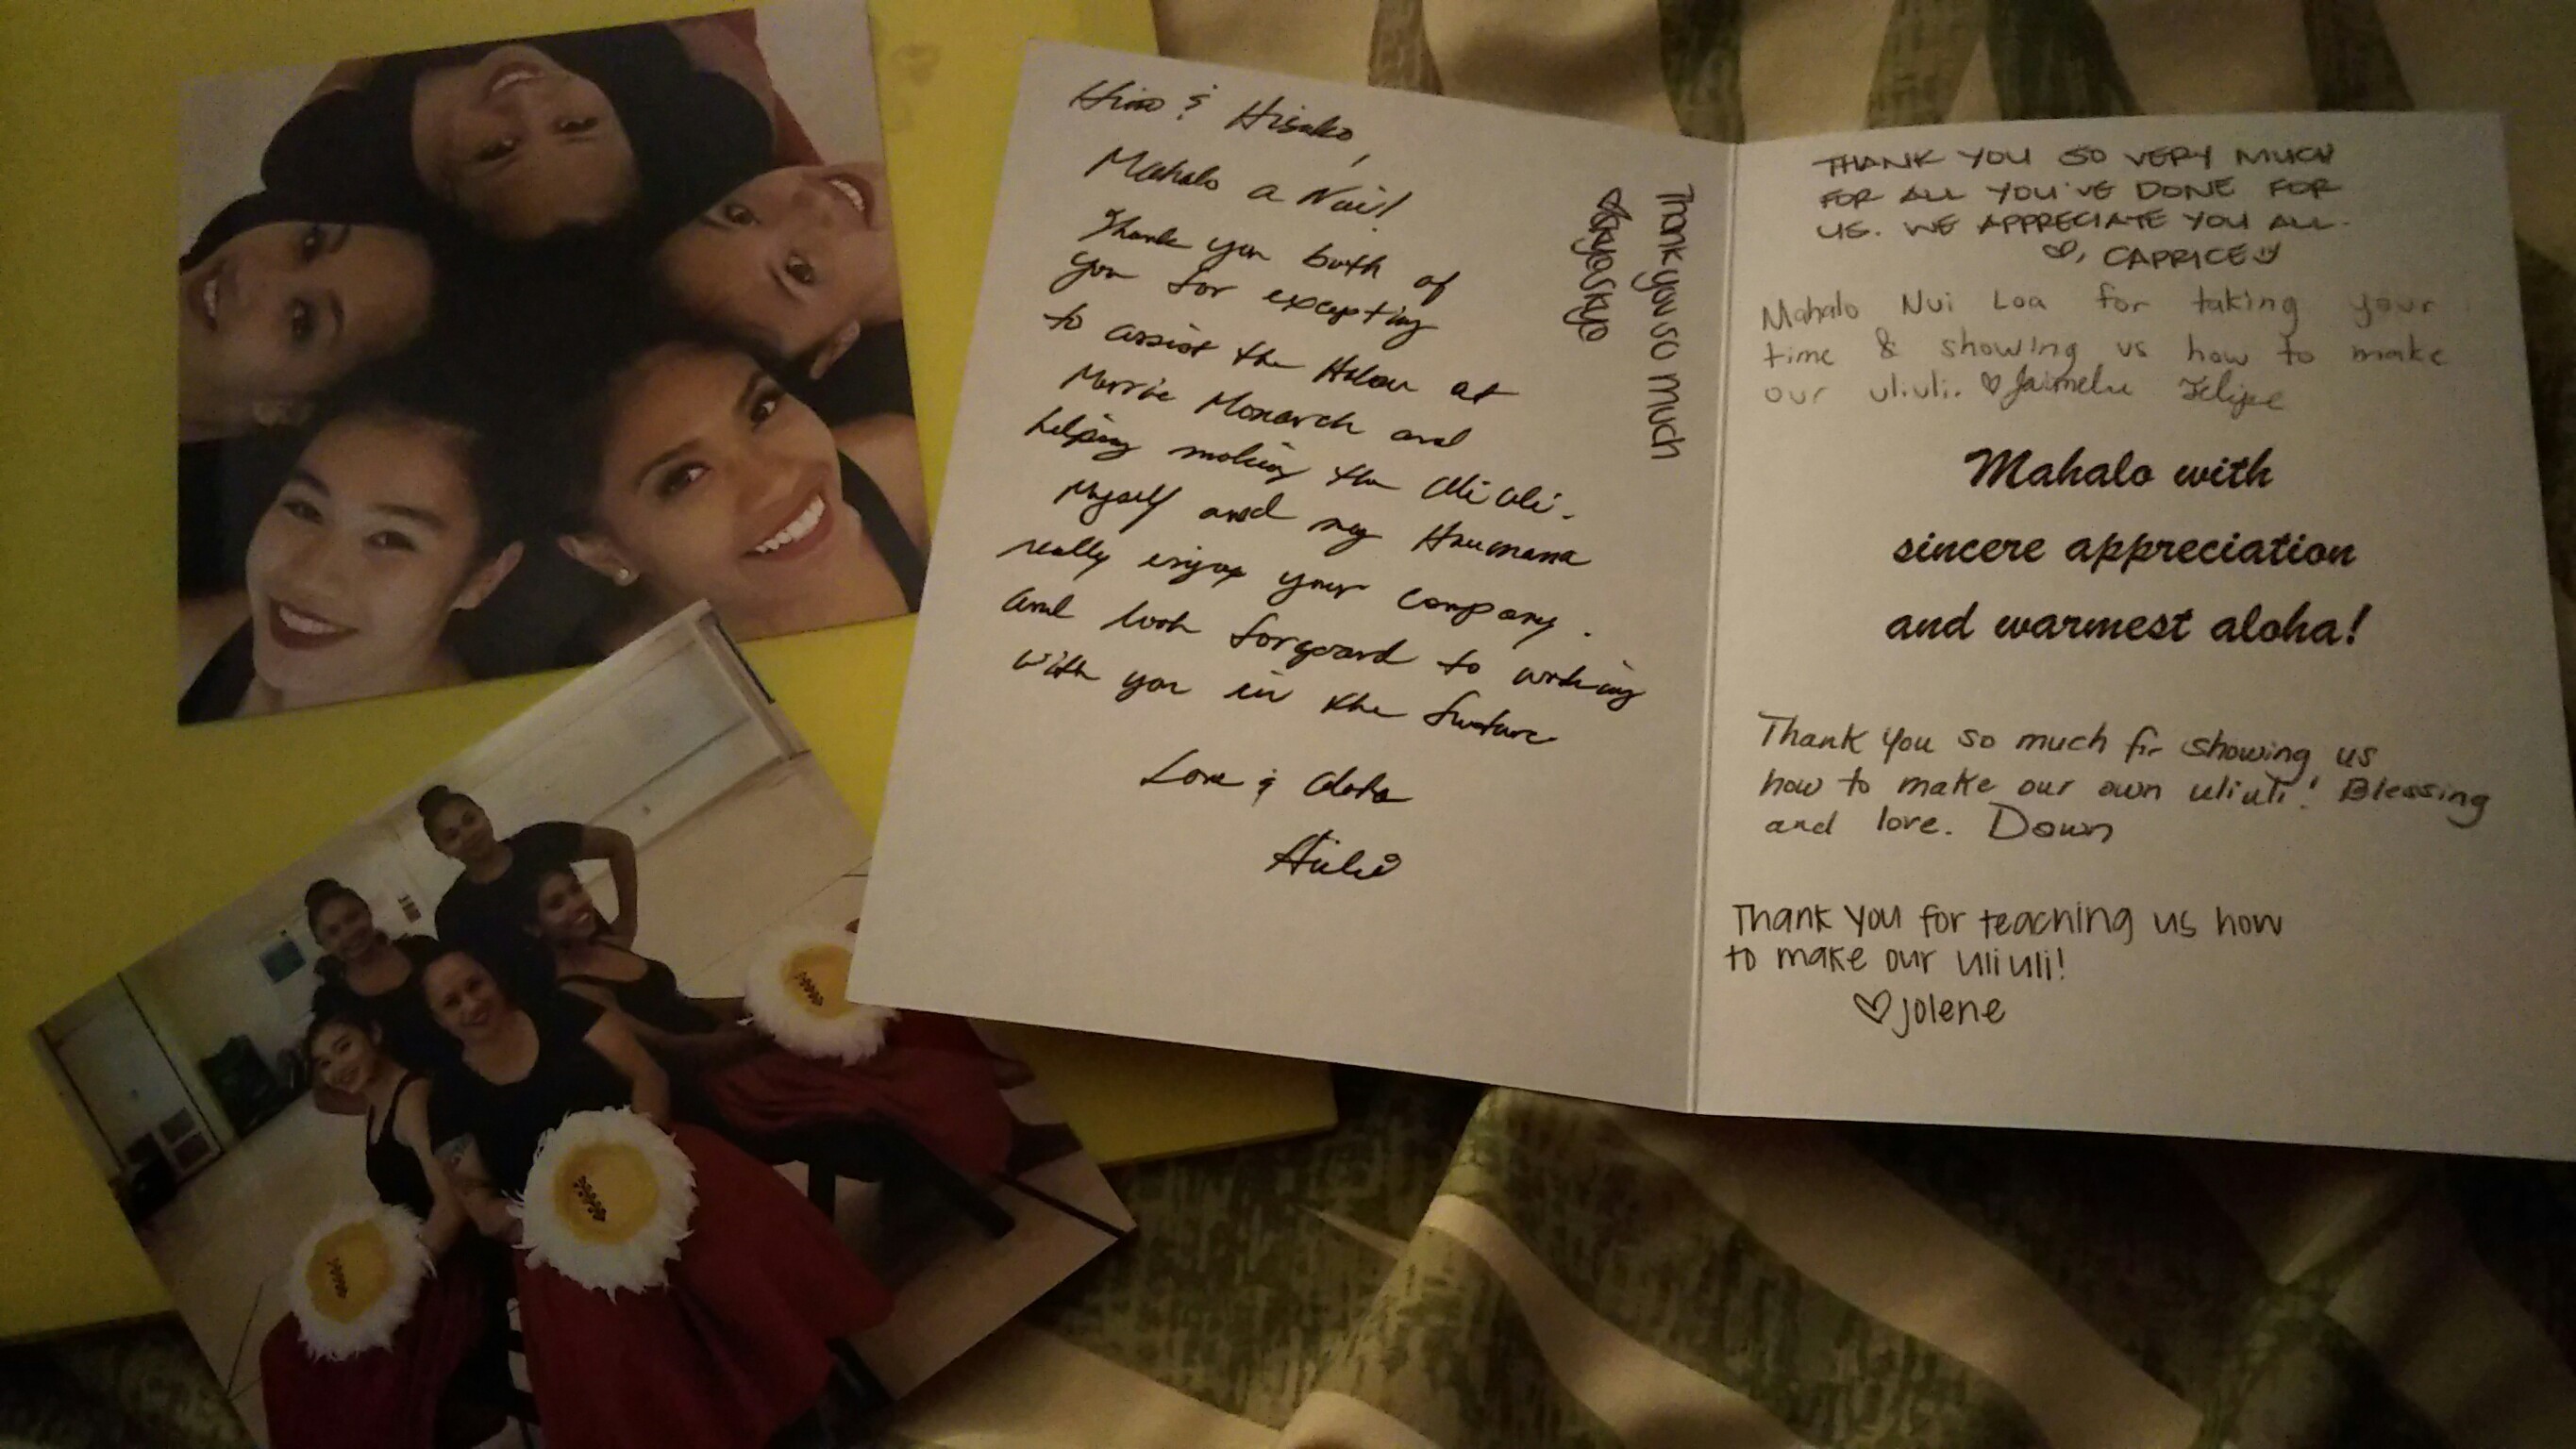 Hino & Hisako,
Mahalo a Nui!
Thank you both of
you for excepting
to assist the Halau at
Merrie Monarch and
helping making the Uli Uli.
Myself and my Haumana
really enjoy your company.
and look forgward to working
with you in the fuature
Love & Aloha
Thank you so much
THANK YOU SO VERY MUCH
FOR ALL YOU'VE DONE FOR
US. WE APPRECIATE YOU ALL.
♡, CAPRICE
Mahalo Nui Loa for taking your
time & showing us how to make
our uliuli. ♡ Jaimelu Felipe
Mahalo with
sincere appreciation
and warmest aloha!
Thank you so much for showing us
how to make our own uliuli! Blessing
and love. Dawn
Thank you for teaching us how
to make our uliuli!
♡ jolene